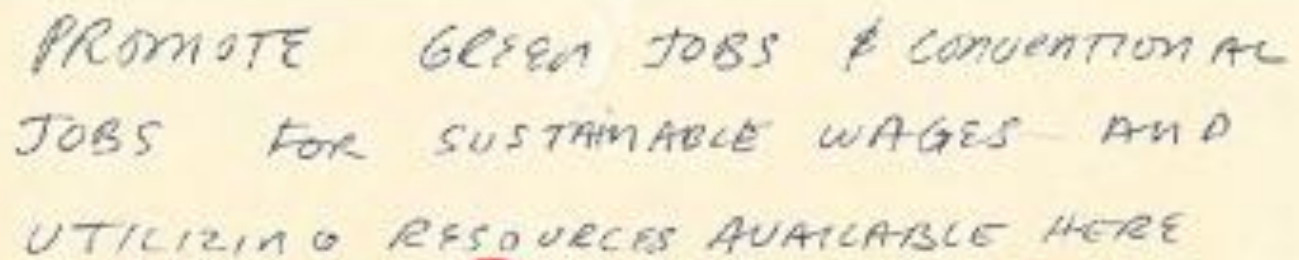 PROMOTE GREEN JOBS & CONVENTIONAL
JOBS FOR SUSTAINABLE WAGES AND
UTILIZING RESOURCES AVAILABLE HERE